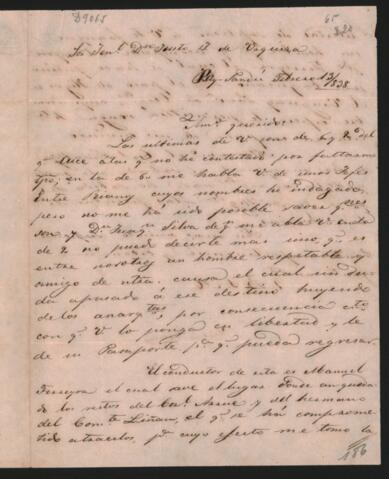 D9065
65
Sr Genl. Dn Justo J de Urquiza
Pay Sandú Febrero 13/838
Amo. querido:
Las ultimas de V son de 6 y 2o. del
qe. luce a las qe. no he contestado por faltarme
tpo; en la de 6 me habla V de unos Gefes
Entre Rianos cuyos nombres he indagado,
pero no me ha sido posible saver qe.
son y Dn. Silva de qe. me abla V en la
de 2 no puedo decirte mas uno, qe. es
entre nosotros un hombre respetable y
amigo de ntra. causa el cual sin du
da apasado á ese destino huyendo
de los anarqtas; por consecuencia
con qe. V lo ponga en libertad y le
de su Pasaporte pa. qe. pueda regresar.
El conductor de esta es Manuel
Ferreyra el cual save el lugar donde an queda
do los restos del y del hermano
del Comte. Liñan, el qe. se há comprome
tido atraerlos, pa. cuyo efecto me tomo la
186